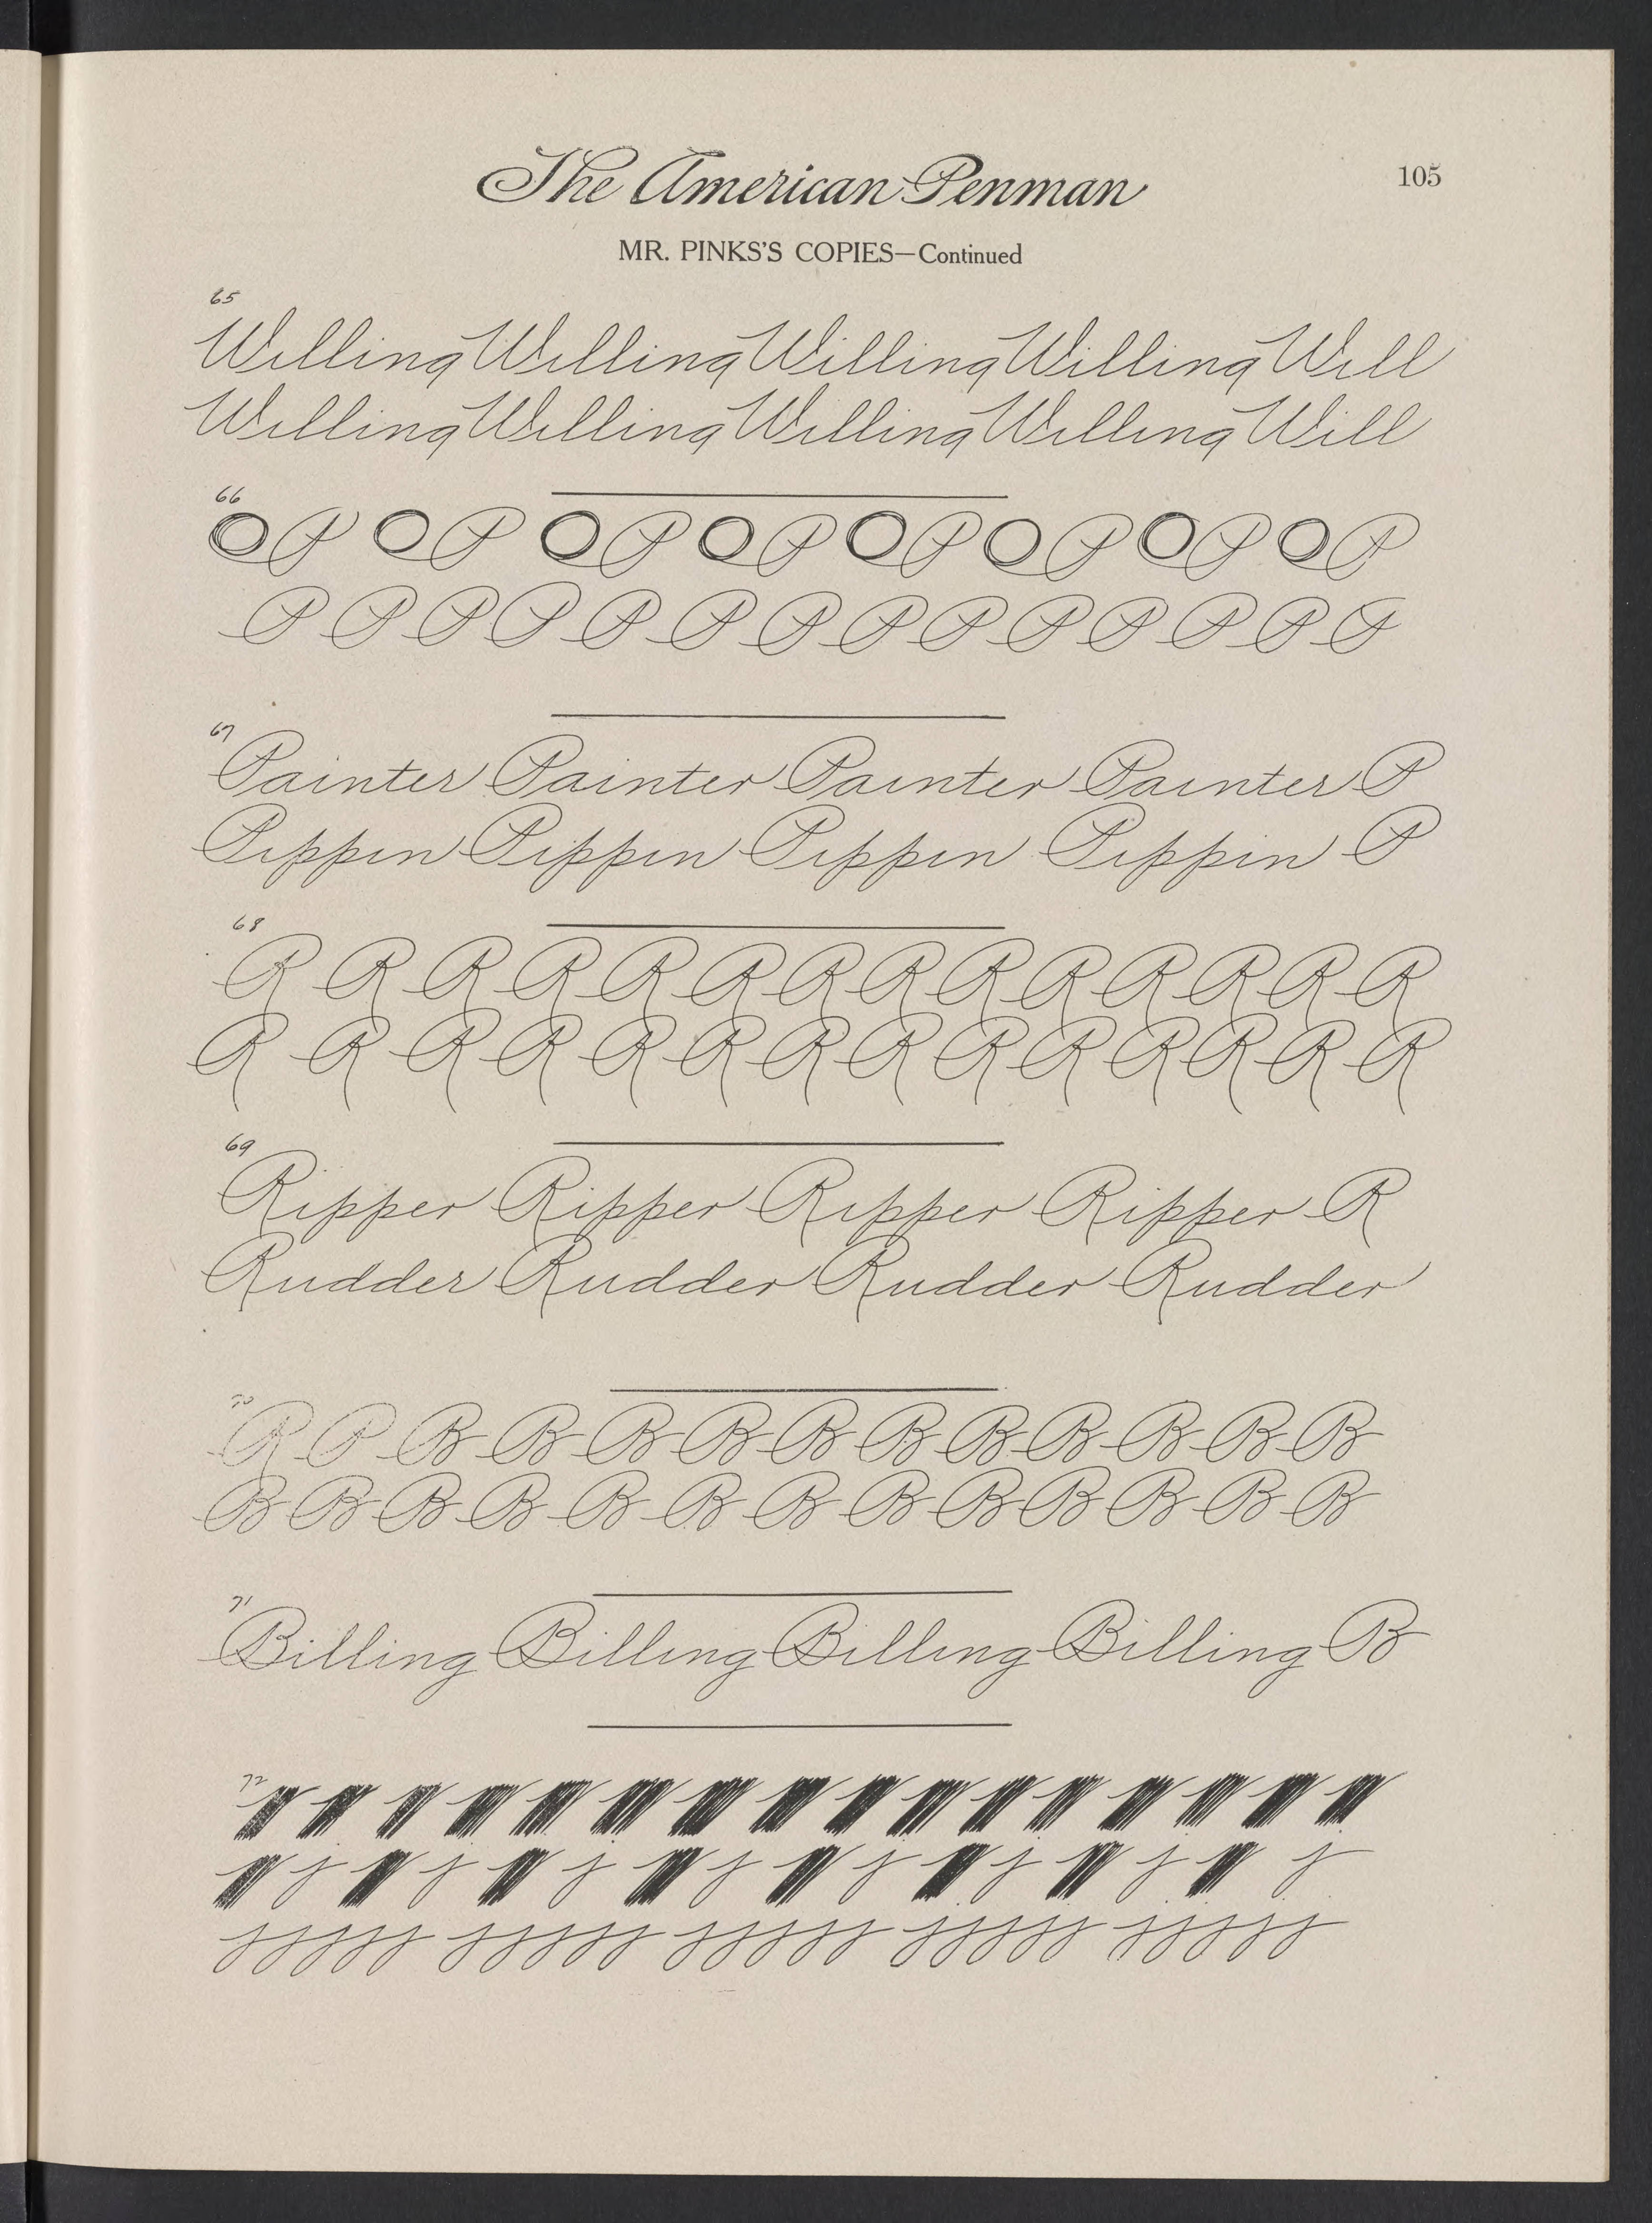 The American Penman
105
MR. PINKS'S COPIES—Continued
65
Willing Willing Willing Willing Will
Willing Willing Willing Willing Will
66
O P O P O P O P O P O P O P O P
P P P P P P P P P P P P P P
67
Painter Painter Painter Painter P
Pippin Pippin Pippin Pippin P
68
R R R R R R R R R R R R R R
R R R R R R R R R R R R R R
69
Ripper Ripper Ripper Ripper R
Rudder Rudder Rudder Rudder
70
R P B B B B B B B B B B B
B B B B B B B B B B B B B
71
Billing Billing Billing Billing B
72